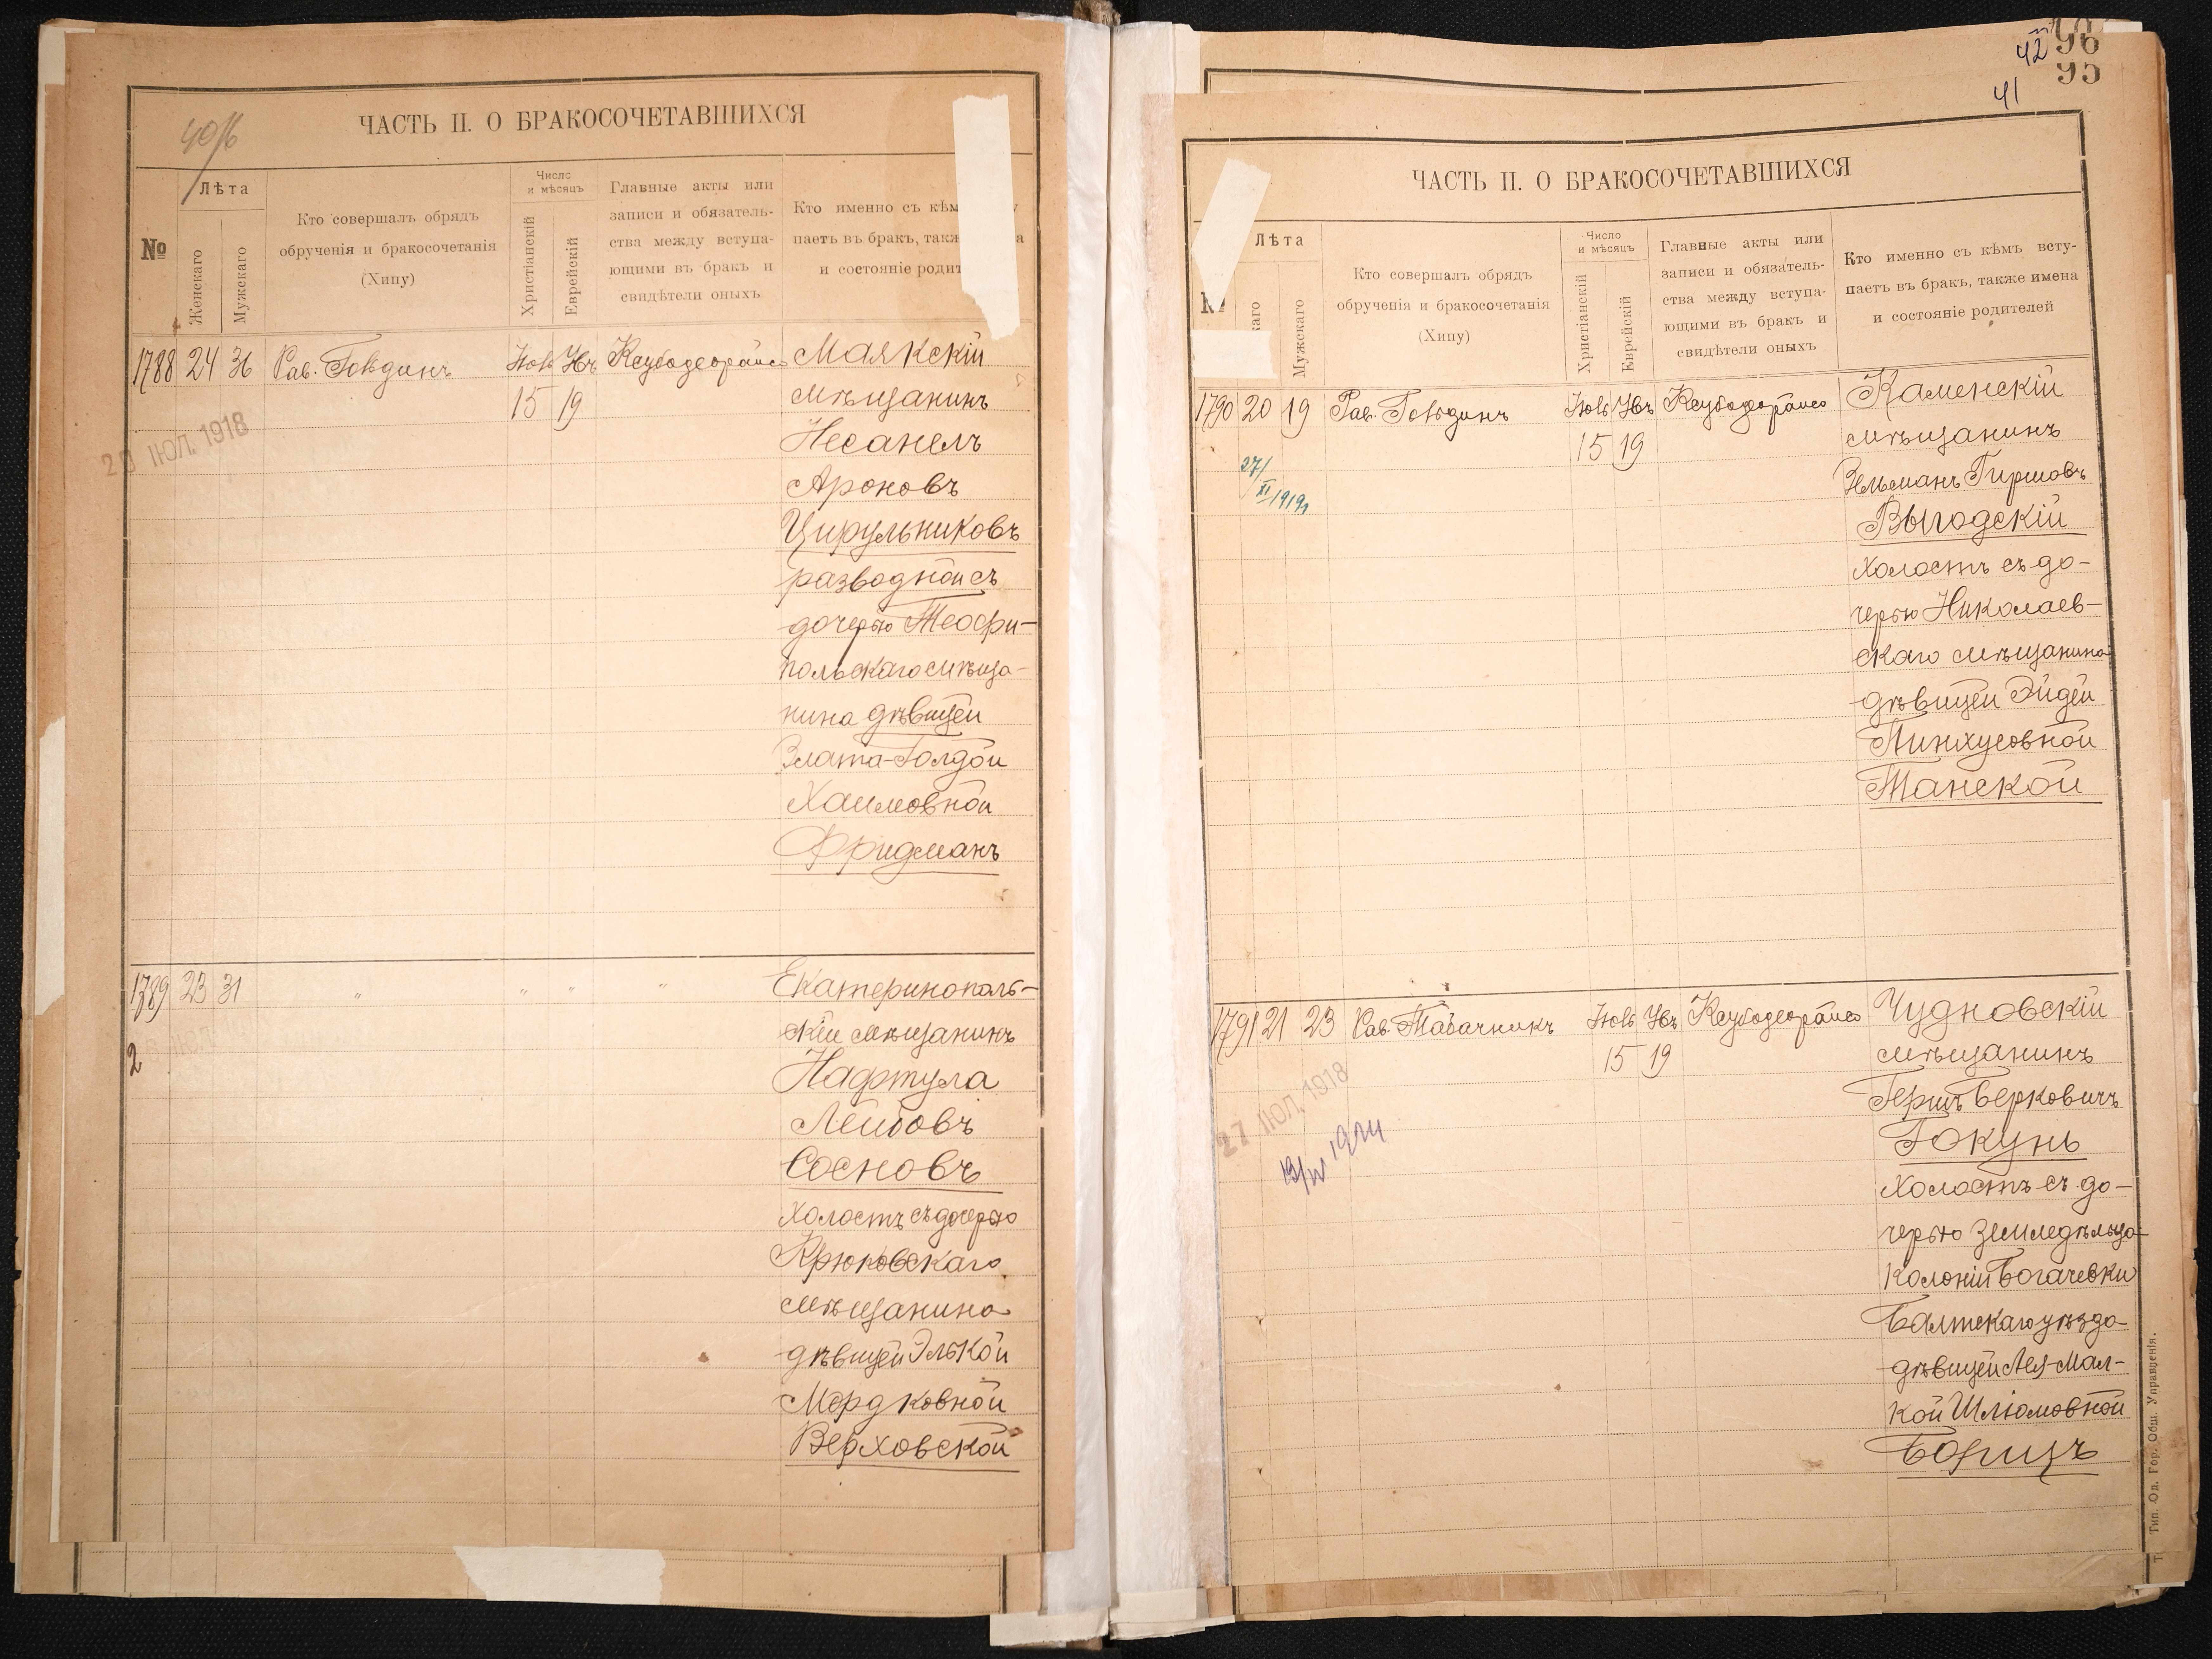 40/б
ЧАСТЬ II. О БРАКОСОЧЕТАВШИХСЯ
№
Лѣта
Женскаго
Мужскаго
Кто совершалъ обрядъ
обрученія и бракосочетанія
(Хипу)
Число
и мѣсяцъ
Христіанскій
Еврейскій
Главные акты или
записи и обязатель-
ства между вступа-
ющими въ бракъ и
свидѣтели оныхъ
Кто именно съ кѣм
паетъ въ бракъ, такж
и состояніе родит
1788 24 36 Рав.
15 19
20 ІЮЛ. 1918
Маякскій
мѣщанинъ
Несанель
Ароновъ
Цирульниковъ
разводной съ
дочерью Теофи-
польскаго мѣща-
нина дѣвицей
Злата-Голдой
Хаимовной
Фридманъ
1789 23 31 " " " "
Екатеринополь-
скій мѣщанинъ
Нафтула
Лейбовъ
Сосновъ
холостъ съ дочерью
Крюковскаго
мѣщанина
дѣвицей Элькой
Мордковной
Верховской
42 96
41 95
ЧАСТЬ II. О БРАКОСОЧЕТАВШИХСЯ
Лѣта
Мужскаго
Кто совершалъ обрядъ
обрученія и бракосочетанія
(Хипу)
Число
и мѣсяцъ
Христіанскій
Еврейскій
Главные акты или
записи и обязатель-
ства между вступа-
ющими въ бракъ и
свидѣтели оныхъ
Кто именно съ кѣмъ всту-
паетъ въ бракъ, также имена
и состояніе родителей
1790 20 19 Рав.
15 19
27/XI 1919
Каменскій
мѣщанинъ
Зельманъ Гиршовъ
Выгодскій
холостъ съ до-
черью Николаев-
скаго мѣщанина
дѣвицей Эйдей
Пинхусовной
Танской
1791 21 23 Рав. Табачникъ
15 19
27 ІЮЛ. 1918
Чудновскій
мѣщанинъ
Гершъ Берковичъ
Гокунь
холостъ съ до-
черью земледѣльца
колоніи Богачевки
Балтскаго уѣзда
дѣвицей Лея-Мал-
кой Шліомовной
Борщъ
Тип. Од. Гор. Общ. Управленія.